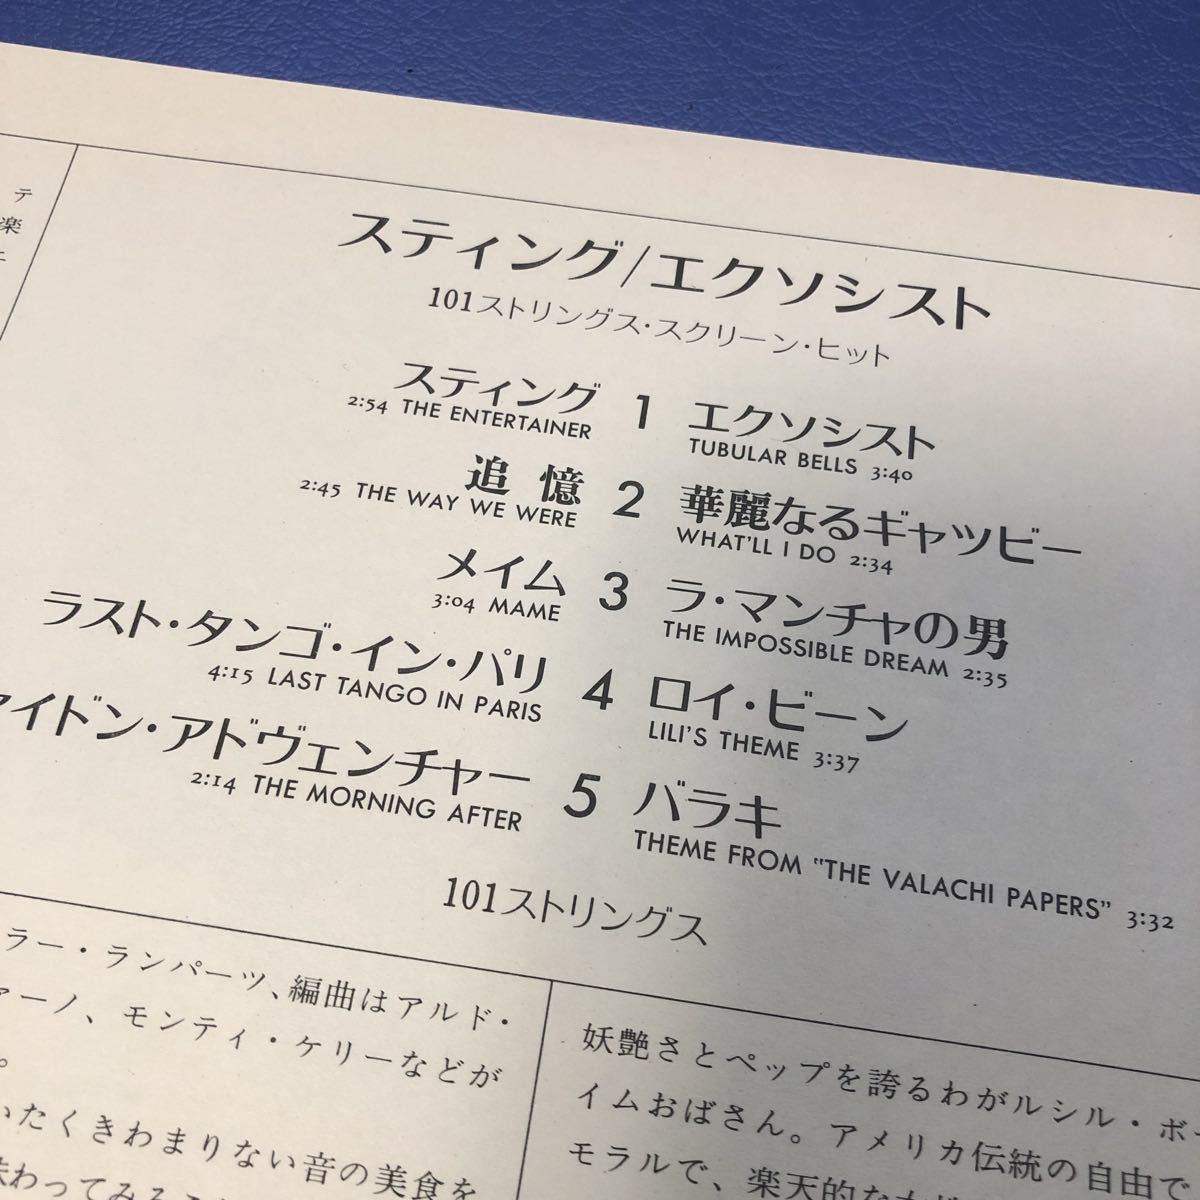 テ
楽
スティング/エクソシスト
101ストリングス・スクリーン・ヒット
スティング 1 エクソシスト
2:54 THE ENTERTAINER TUBULAR BELLS 3:40
追憶 2 華麗なるギャツビー
2:45 THE WAY WE WERE WHAT'LL I DO 2:34
メイム 3 ラ・マンチャの男
3:04 MAME THE IMPOSSIBLE DREAM 2:35
ラスト・タンゴ・イン・パリ 4 ロイ・ビーン
4:15 LAST TANGO IN PARIS LILI'S THEME 3:37
ァイドン・アドヴェンチャー 5 バラキ
2:14 THE MORNING AFTER THEME FROM "THE VALACHI PAPERS" 3:32
101ストリングス
ラー・ランパーツ、編曲はアルド・
アーノ、モンティ・ケリーなどが
。
いたくきわまりない音の美食を
味わってみること
妖艶さとペップを誇るわがルシル・ボー
イムおばさん。アメリカ伝統の自由で
モラルで、楽天的な